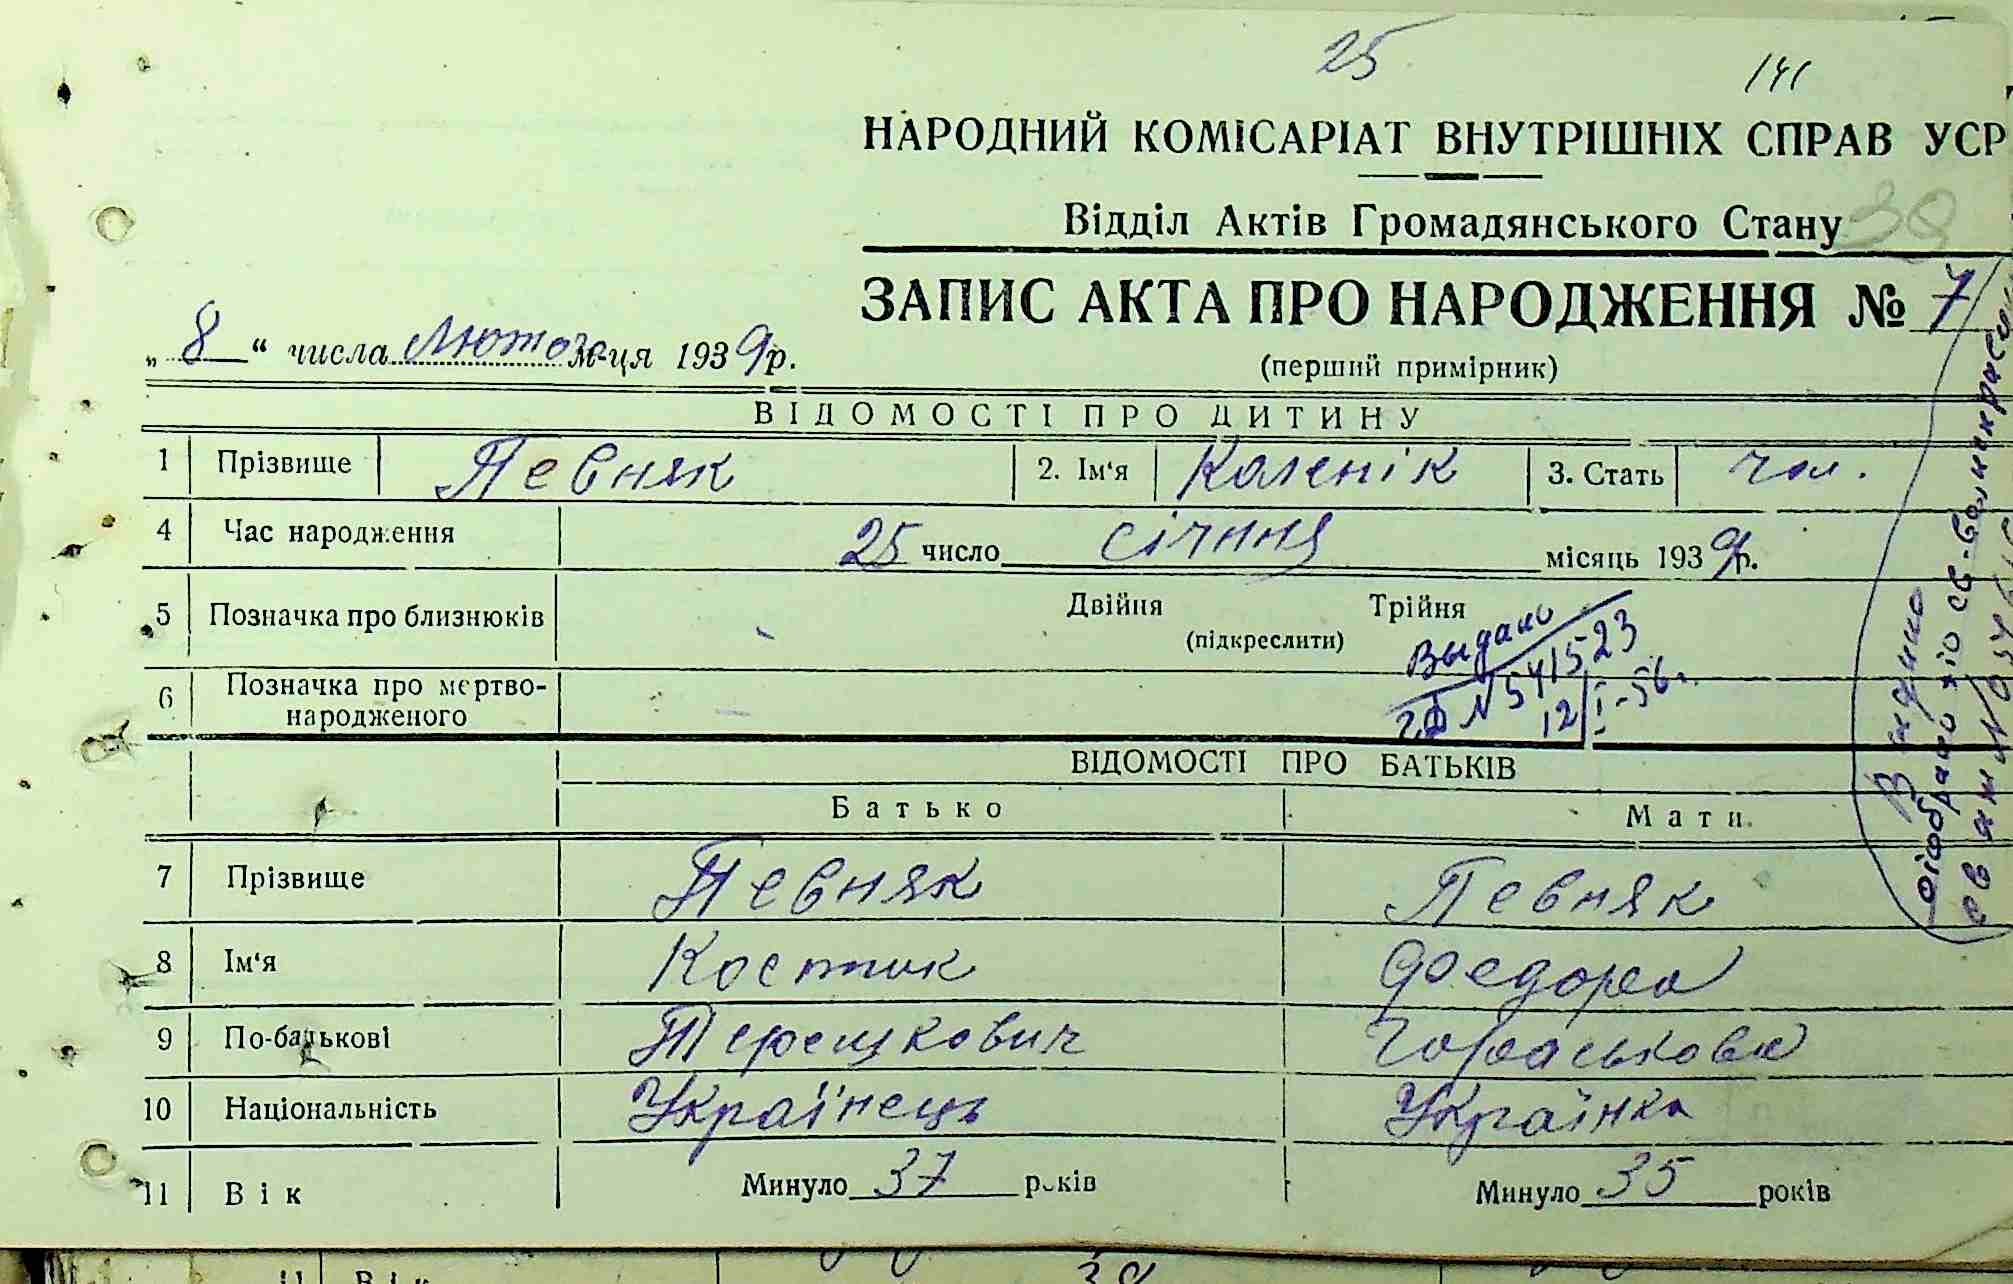 25
141
НАРОДНИЙ КОМІСАРІАТ ВНУТРІШНІХ СПРАВ УСР
Відділ Актів Громадянського Стану 38
ЗАПИС АКТА ПРО НАРОДЖЕННЯ № 7
„ 8 “ числа Лютого м-ця 1939 р.
(перший примірник)
ВІДОМОСТІ ПРО ДИТИНУ
1 Прізвище Певняк 2. Ім‘я Каленік 3. Стать чол.
4 Час народження 25 число січння місяць 1939 р.
5 Позначка про близнюків - Двійня Трійня
(підкреслити)
Выдано
N 541523
12/I-56 г.
6 Позначка про мертво-
народженого —
ВІДОМОСТІ ПРО БАТЬКІВ
Батько Мати
7 Прізвище Певняк Певняк
8 Ім‘я Костик Фоедора
9 По-батькові Терешкович Гораськова
10 Національність Українець Українка
11 Вік Минуло 37 років Минуло 35 років
Видано
11 Вік 38